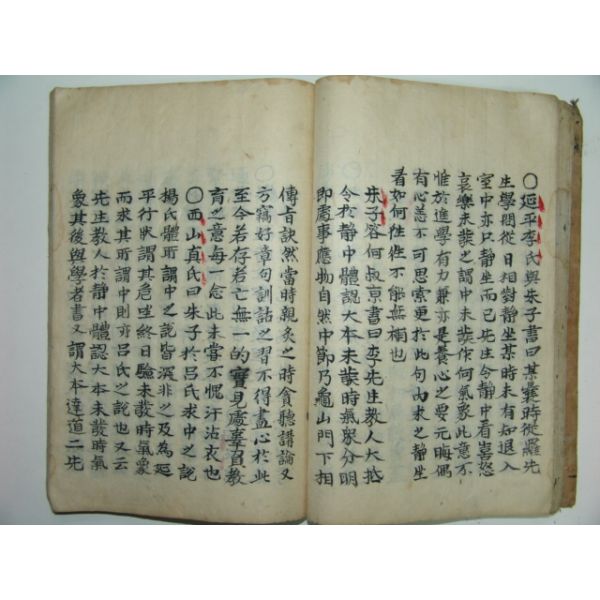 ○延平李氏與朱子書曰某曩時從羅先
生學問從日相對靜坐某時未有知退入
室中亦只靜坐而已先生令靜中看喜怒
哀樂未發之謂中未發作何氣象此意不
惟於進學有力兼亦是養心之要元晦偶
有心恙不可思索更於此句內求之靜坐
看如何往往不能無補也
朱子答何叔京書曰李先生教人大抵
令於靜中體認大本未發時氣象分明
即處事應物自然中節乃龜山門下相
傳旨訣然當時親炙之時貪聽講論又
方竊好章句訓詁之習不得盡心於此
至今若存若亡無一的實見處辜負教
育之意每一念此未嘗不愧汗沾衣也
○西山真氏曰朱子於呂氏求中之說
楊氏體所謂中之說皆深非之及為延
平行狀謂其危坐終日驗未發時氣象
而求其所謂中則亦呂氏之說也又云
先生教人於靜中體認大本未發時氣
象其後與學者書又謂大本達道二先